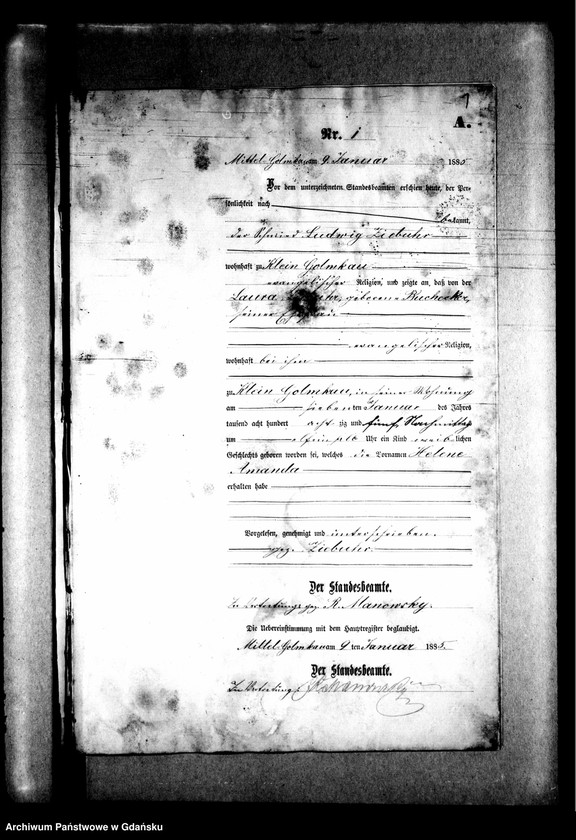 7
A.
Nr. 1
Mittel Golmkau am 9. Januar 1885
Vor dem unterzeichneten Standesbeamten erschien heute, der Per-
sönlichkeit nach
bekannt,
der Schmied Ludwig Ziebuhr
wohnhaft zu Klein Golmkau
evangelischer Religion, und zeigte an, daß von der
Laura geborene
seiner Ehefrau
evangelischer Religion,
wohnhaft bei ihm
zu Klein Golmkau, in seiner Wohnung
am sieben ten Januar des Jahres
tausend acht hundert acht zig und fünf, Vormittags
um Uhr ein Kind weib lichen
Geschlechts geboren worden sei, welches die Vornamen Helene
Amanda
erhalten habe
Vorgelesen, genehmigt und unterschrieben.
gez. Ziebuhr.
Der Standesbeamte.
In Vertretung gez. R. Manowsky.
Die Uebereinstimmung mit dem Hauptregister beglaubigt.
Mittel Golmkau am 9 ten Januar 1885.
Der Standesbeamte.
In Vertretung
Archiwum Państwowe w Gdańsku